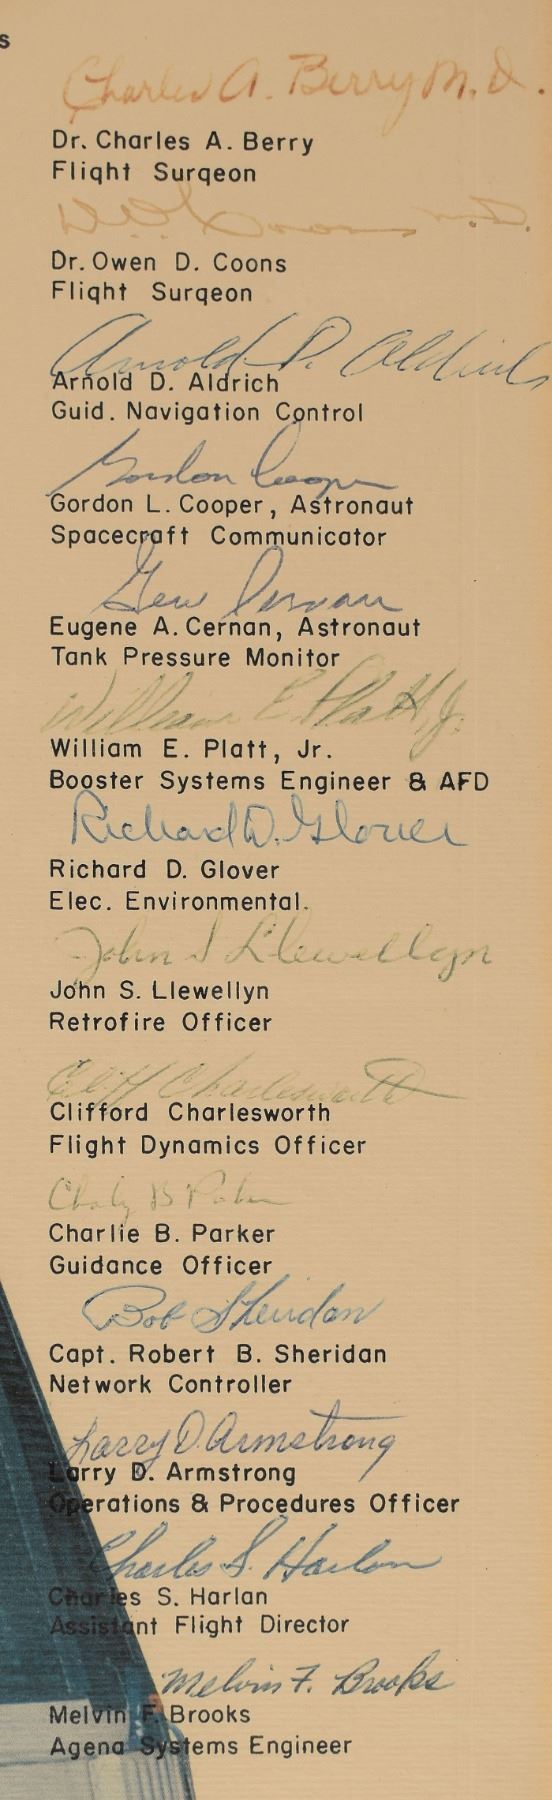 s
Charles A. Berry M.D.
Dr. Charles A. Berry
Flight Surgeon
D.O. Coons M.D.
Dr. Owen D. Coons
Flight Surgeon
Arnold D. Aldrich
Arnold D. Aldrich
Guid. Navigation Control
Gordon Cooper
Gordon L. Cooper, Astronaut
Spacecraft Communicator
Gene Cernan
Eugene A. Cernan, Astronaut
Tank Pressure Monitor
William E. Platt, Jr.
William E. Platt, Jr.
Booster Systems Engineer & AFD
Richard D. Glover
Richard D. Glover
Elec. Environmental.
John S Llewellyn
John S. Llewellyn
Retrofire Officer
Cliff Charlesworth
Clifford Charlesworth
Flight Dynamics Officer
B Parker
Charlie B. Parker
Guidance Officer
Bob Sheridan
Capt. Robert B. Sheridan
Network Controller
Larry D. Armstrong
Larry D. Armstrong
Operations & Procedures Officer
Charles S. Harlan
Charles S. Harlan
Assistant Flight Director
Melvin F. Brooks
Melvin F. Brooks
Agena Systems Engineer